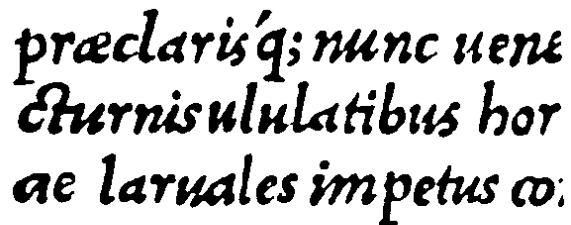 præclarisq́; nunc uene
cturnis ululatibus hor
ae laruales impetus co